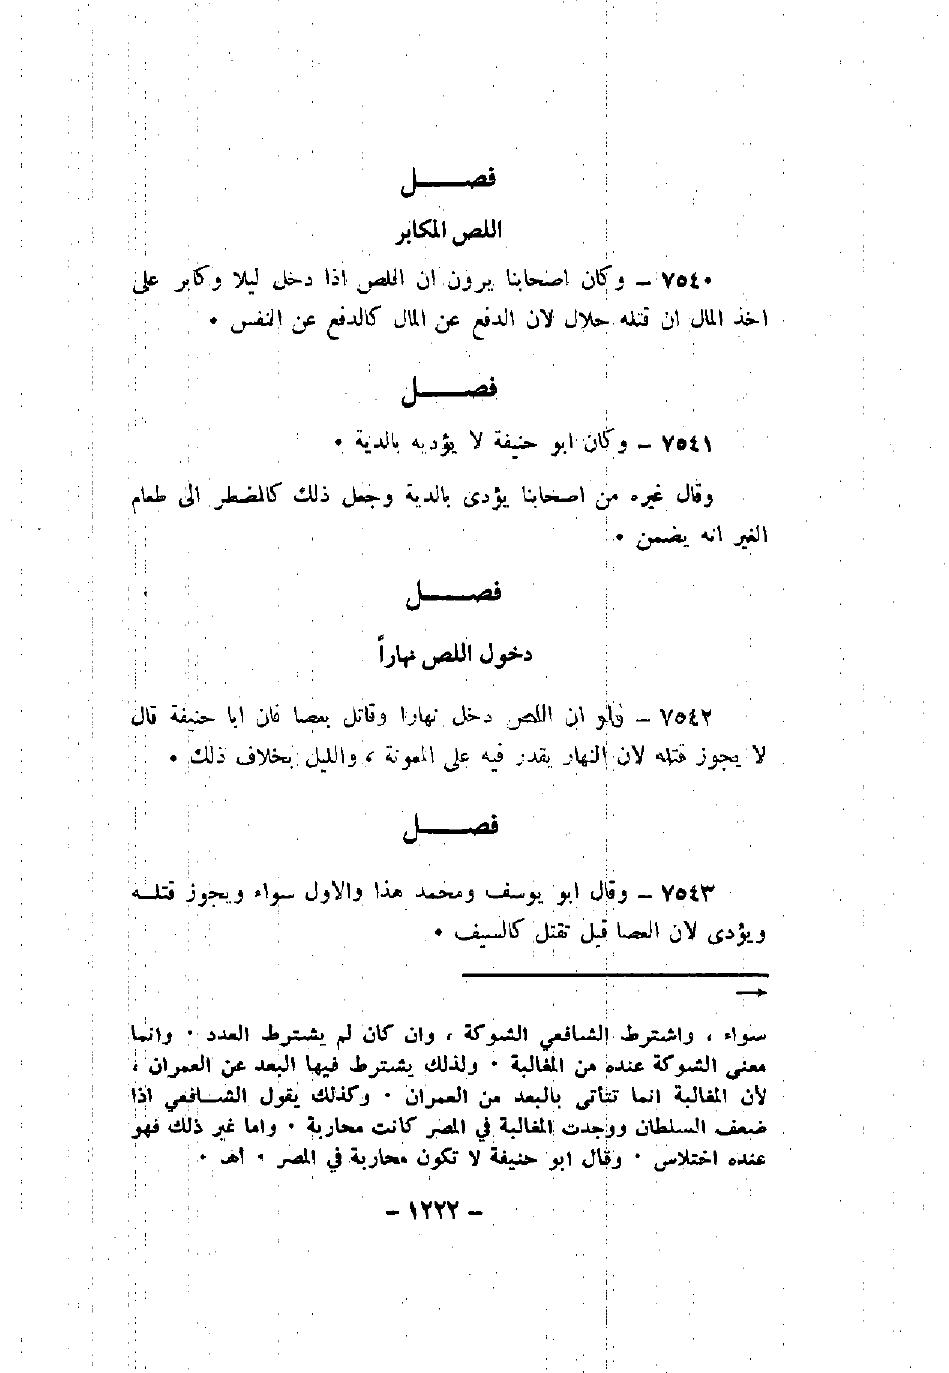 فصـــــل
اللص المكابر
٧٥٤٠ – وكان اصحابنا يرون ان اللص اذا دخل ليلا وكابر على
اخذ المال ان قتله حلال لان الدفع عن المال كالدفع عن النفس ٠
فصـــــل
٧٥٤١ – وكان ابو حنيفة لا يؤديه بالدية ٠
وقال غيره من اصحابنا يؤدى بالدية وجعل ذلك كالمضطر الى طعام
الغير انه يضمن ٠
فصـــــل
دخول اللص نهاراً
٧٥٤٢ – فلو ان اللص دخل نهارا وقاتل بعصا فان ابا حنيفة قال
لا يجوز قتله لان النهار يقدر فيه على المعونة ، والليل بخلاف ذلك ٠
فصـــــل
٧٥٤٣ – وقال ابو يوسف ومحمد هذا والاول سواء ويجوز قتلـــه
ويؤدى لان العصا قبل تقتل كالسيف ٠
→
سواء ، واشترط الشافعي الشوكة ، وان كان لم يشترط العدد ٠ وانما
معنى الشوكة عنده من المغالبة ٠ ولذلك يشترط فيها البعد عن العمران ،
لأن المغالبة انما تتأتى بالبعد من العمران ٠ وكذلك يقول الشـــافعي اذا
ضعف السلطان ووجدت المغالبة في المصر كانت محاربة ٠ واما غير ذلك فهو
عنده اختلاس ٠ وقال ابو حنيفة لا تكون محاربة في المصر ٠ أهـ ٠
– ١٢٢٢ –